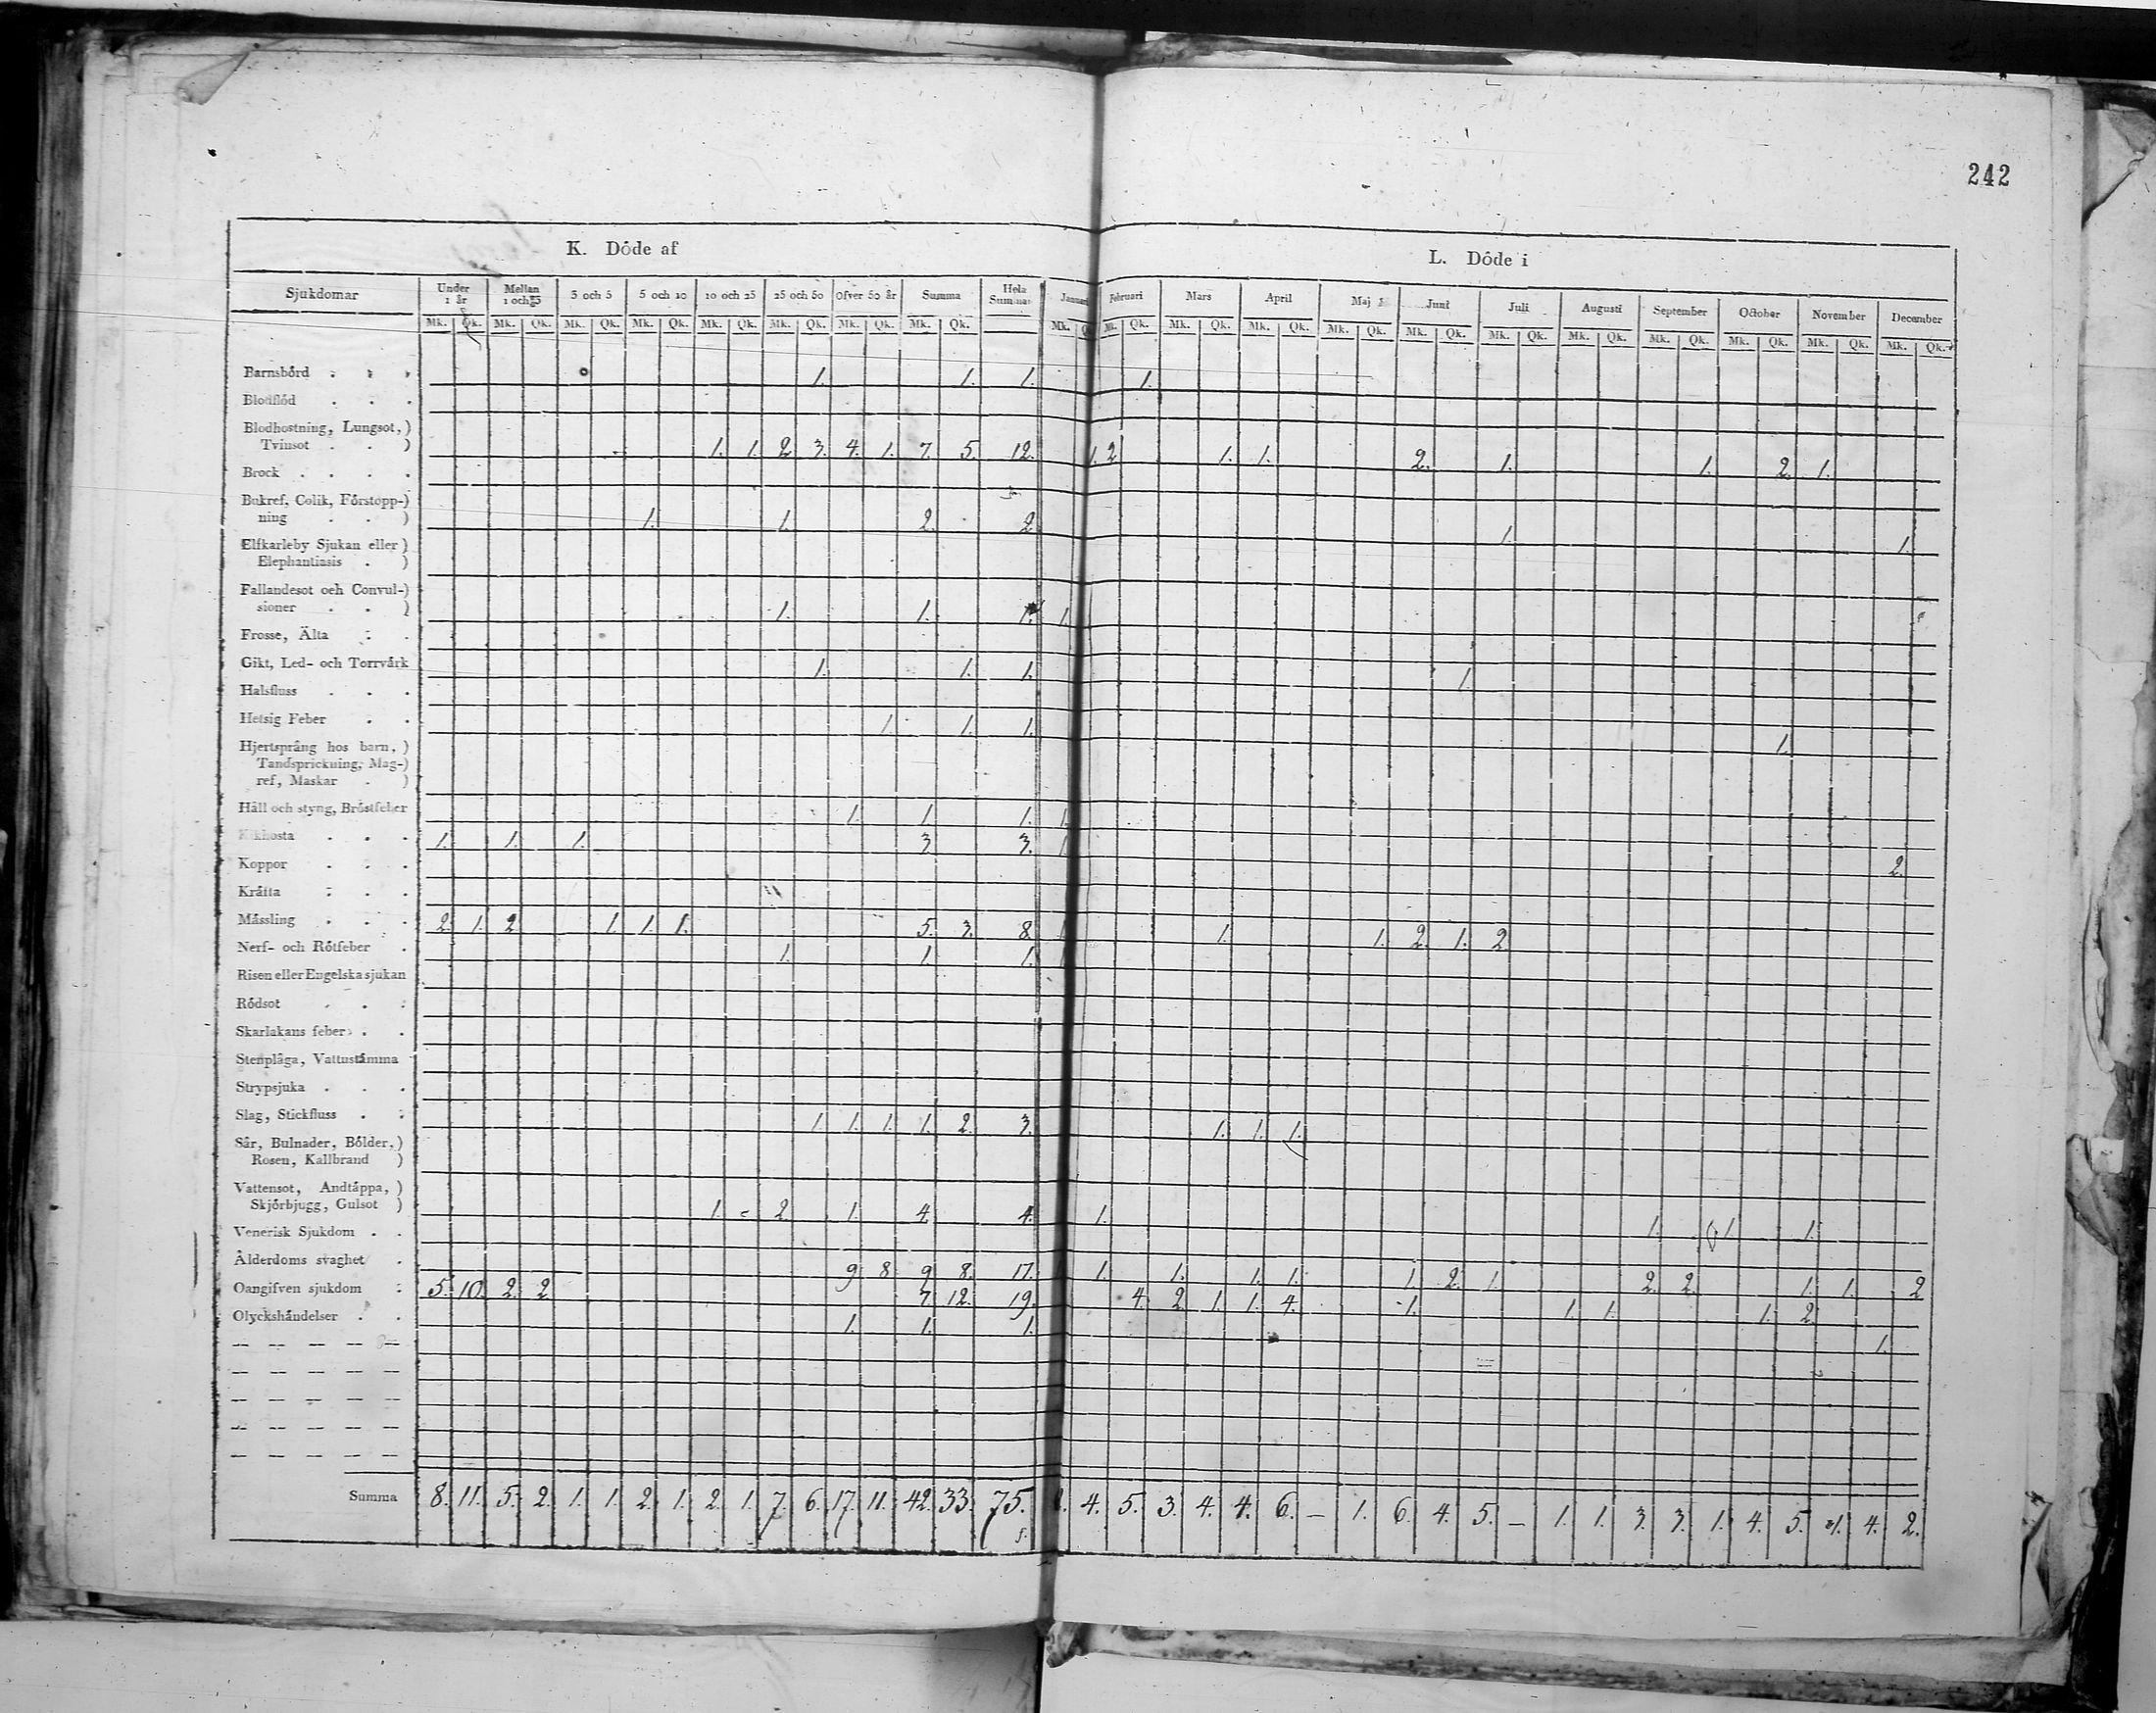 242
K. Döde af L. Döde i
Sjukdomar Under 1 år Mellan 1 och 3 3 och 5 5 och 10 10 och 25 25 och 50 Öfver 50 år Summa Hela Summan Januari Februari Mars April Maj Juni Juli Augusti September October November December
Mk. Qk. Mk. Qk. Mk. Qk. Mk. Qk. Mk. Qk. Mk. Qk. Mk. Qk. Mk. Qk. Mk. Qk. Mk. Qk. Mk. Qk. Mk. Qk. Mk. Qk. Mk. Qk. Mk. Qk. Mk. Qk. Mk. Qk. Mk. Qk. Mk. Qk. Mk. Qk.
Barnsbörd . . . 1. 1. 1. 1.
Blodflöd . . .
Blodhostning, Lungsot, )
Tvinsot . . ) 1. 1. 2. 3. 4. 1. 7. 5. 12. 1. 2 1. 1. 2. 1. 1. 2. 1.
Brock . . . .
Bukref, Colik, Förstopp-)
ning . . ) 1. 1. 2. 2. 1. 1.
Elfkarleby Sjukan eller )
Elephantiasis . )
Fallandesot och Convul-)
sioner . . ) 1. 1. 1. 1.
Frosse, Älta . .
Gikt, Led- och Torrvårk 1. 1. 1. 1.
Halsfluss . . .
Hetsig Feber . . 1. 1. 1. 1.
Hjertsprång hos barn, )
Tandsprickning, Mag-)
ref, Maskar . )
Håll och styng, Bröstfeber 1. 1. 1. 1.
Kikhosta . . . 1. 1. 1. 3 3. 1 2.
Koppor . . .
Kråfta . . .
Måssling . . . 2. 1. 2 1. 1. 1. 5. 3. 8. 1 1. 1. 2. 1. 2
Nerf- och Rötfeber . 1. 1. 1. 1
Risen eller Engelska sjukan
Rödsot . . .
Skarlakans feber . .
Stenplåga, Vattustämma
Strypsjuka . . .
Slag, Stickfluss . . 1. 1. 1. 1. 2. 3. 1. 1. 1.
Sår, Bulnader, Bölder, )
Rosen, Kallbrand )
Vattensot, Andtäppa, )
Skjörbjugg, Gulsot ) 1. 2. 1. 4. 4. 1. 1. 1 1.
Venerisk Sjukdom . .
Ålderdoms svaghet . 9 8 9 8. 17. 1. 1. 1. 1. 1. 2. 1. 2. 2. 1. 1. 2
Oangifven sjukdom . 5. 10. 2. 2 7. 12. 19. 4. 2 1. 1. 4. 1. 1. 1. 1. 2.
Olyckshändelser . . 1. 1. 1. 1.
— — — — —
— — — — —
— — — — —
— — — — —
— — — — —
Summa 8. 11. 5. 2. 1. 1. 2. 1. 2. 1. 7. 6. 17. 11. 42. 33. 75. 4. 5. 3. 4. 4. 6. — 1. 6. 4. 5. — 1. 1. 3. 3. 1. 4. 5. 1. 4. 2.